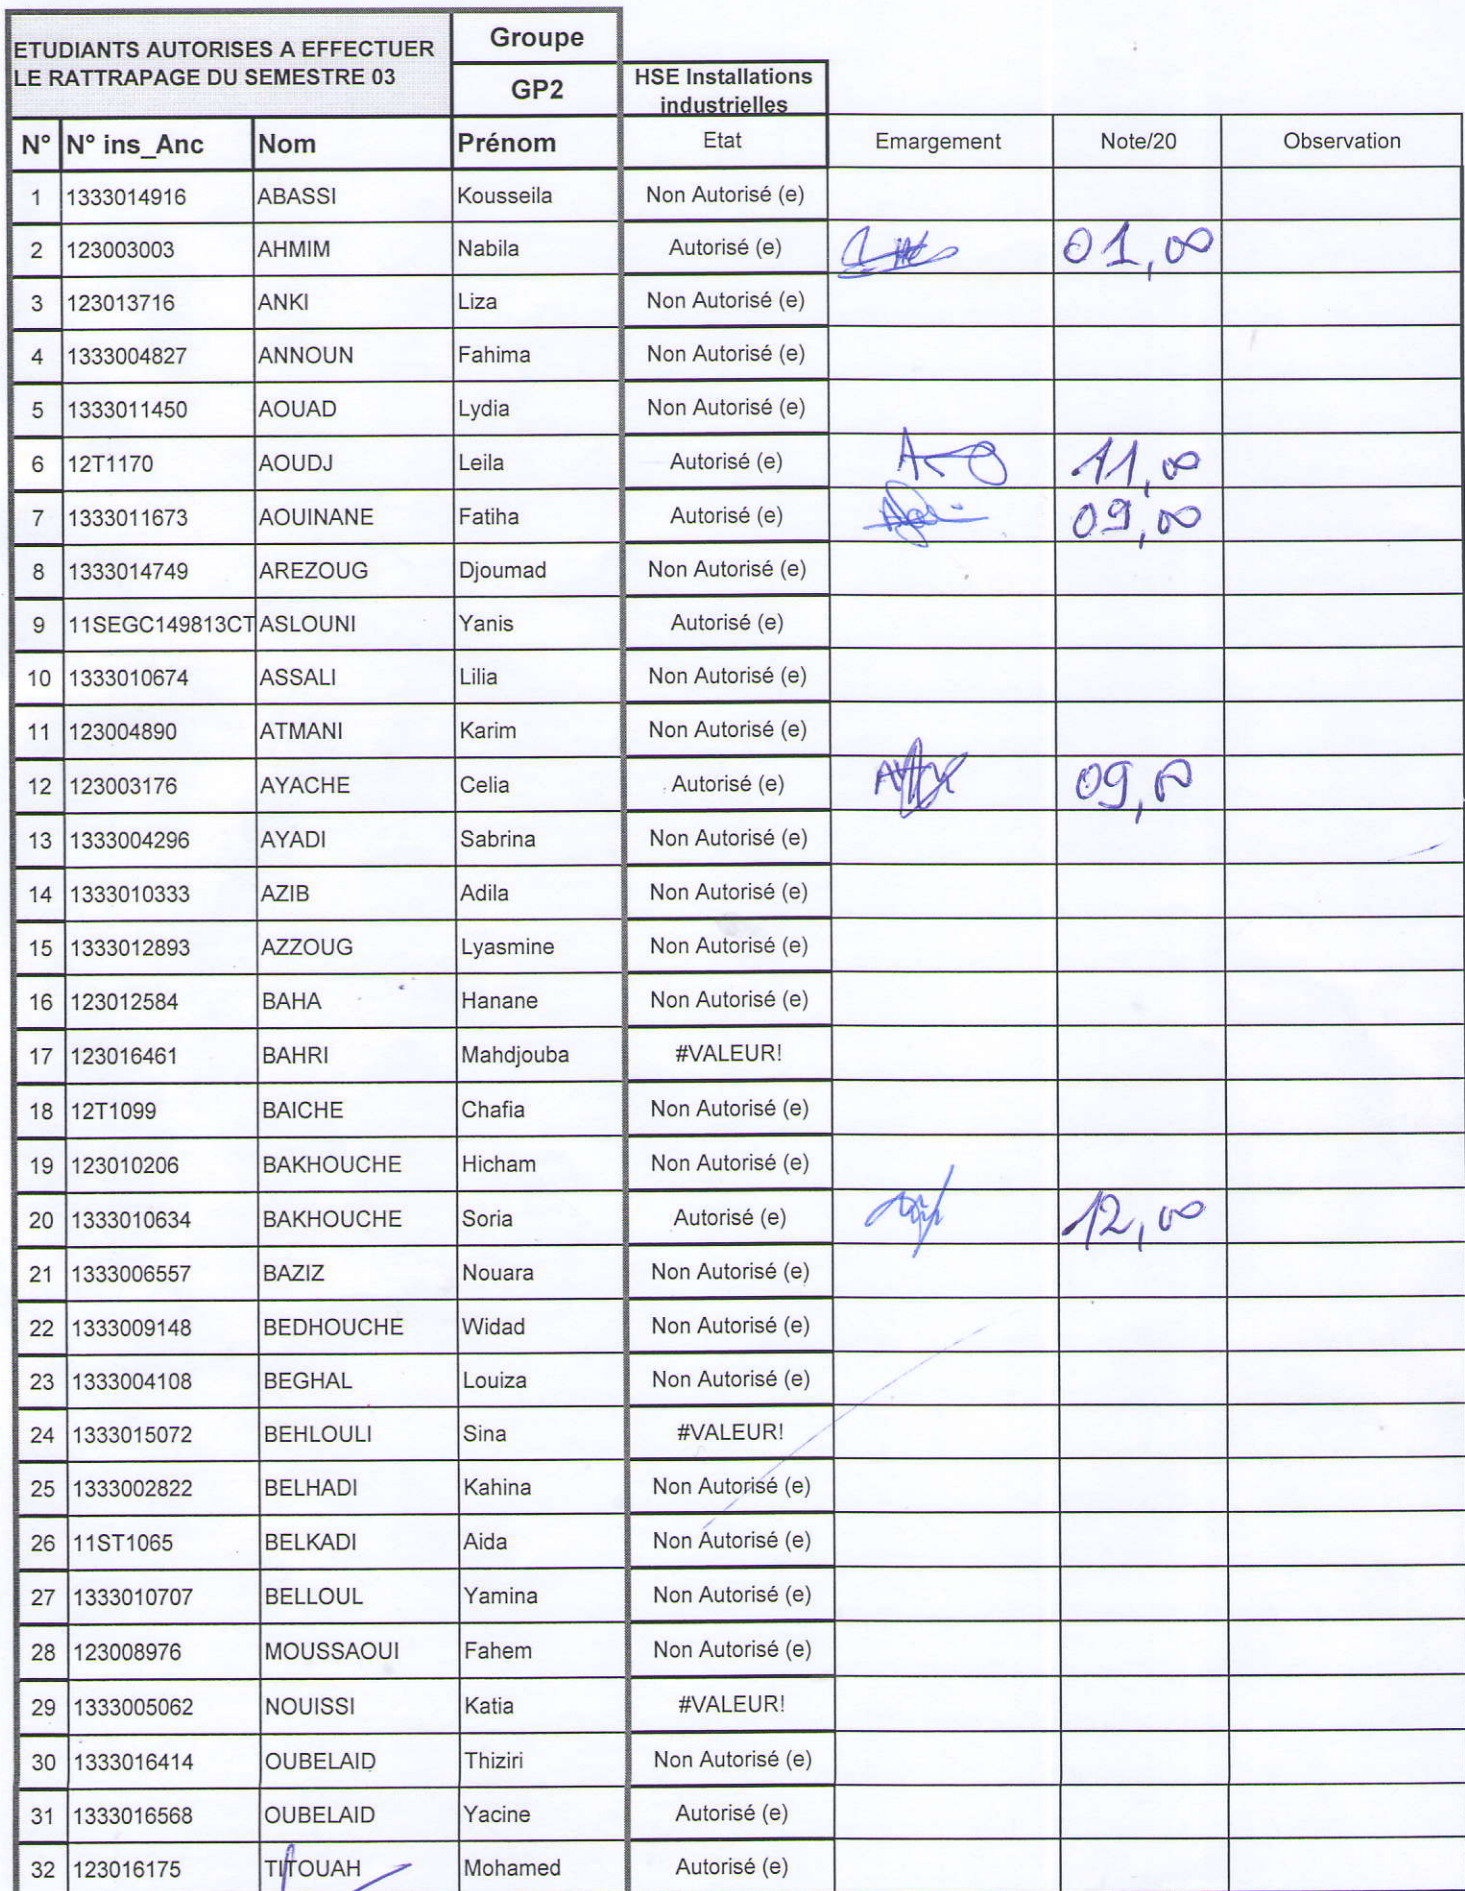 ETUDIANTS AUTORISES A EFFECTUER Groupe
LE RATTRAPAGE DU SEMESTRE 03 GP2 HSE Installations industrielles
N° N° ins_Anc Nom Prénom Etat Emargement Note/20 Observation
1 1333014916 ABASSI Kousseila Non Autorisé (e)
2 123003003 AHMIM Nabila Autorisé (e) 01,00
3 123013716 ANKI Liza Non Autorisé (e)
4 1333004827 ANNOUN Fahima Non Autorisé (e)
5 1333011450 AOUAD Lydia Non Autorisé (e)
6 12T1170 AOUDJ Leila Autorisé (e) 11,00
7 1333011673 AOUINANE Fatiha Autorisé (e) 09,00
8 1333014749 AREZOUG Djoumad Non Autorisé (e)
9 11SEGC149813CT ASLOUNI Yanis Autorisé (e)
10 1333010674 ASSALI Lilia Non Autorisé (e)
11 123004890 ATMANI Karim Non Autorisé (e)
12 123003176 AYACHE Celia Autorisé (e) 09,00
13 1333004296 AYADI Sabrina Non Autorisé (e)
14 1333010333 AZIB Adila Non Autorisé (e)
15 1333012893 AZZOUG Lyasmine Non Autorisé (e)
16 123012584 BAHA Hanane Non Autorisé (e)
17 123016461 BAHRI Mahdjouba #VALEUR!
18 12T1099 BAICHE Chafia Non Autorisé (e)
19 123010206 BAKHOUCHE Hicham Non Autorisé (e)
20 1333010634 BAKHOUCHE Soria Autorisé (e) 12,00
21 1333006557 BAZIZ Nouara Non Autorisé (e)
22 1333009148 BEDHOUCHE Widad Non Autorisé (e)
23 1333004108 BEGHAL Louiza Non Autorisé (e)
24 1333015072 BEHLOULI Sina #VALEUR!
25 1333002822 BELHADI Kahina Non Autorisé (e)
26 11ST1065 BELKADI Aida Non Autorisé (e)
27 1333010707 BELLOUL Yamina Non Autorisé (e)
28 123008976 MOUSSAOUI Fahem Non Autorisé (e)
29 1333005062 NOUISSI Katia #VALEUR!
30 1333016414 OUBELAID Thiziri Non Autorisé (e)
31 1333016568 OUBELAID Yacine Autorisé (e)
32 123016175 TITOUAH Mohamed Autorisé (e)